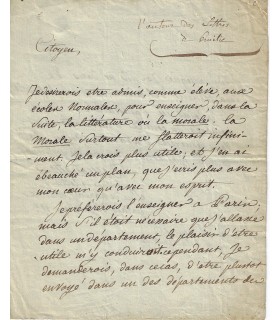 l'auteur des Lettres
à Emilie
Citoyen,
Je desirerois etre admis, comme élève, aux
écoles Normales, pour enseigner, dans la
suite, la littérature ou la morale. la
Morale surtout me flatteroit infini-
ment. Je la crois plus utile, et j'en ai
ébauché un plan, que j'écris plus avec
mon cœur qu'avec mon esprit.
Je préférerois l'enseigner a Paris,
mais s'il étoit nécessaire que j'allasse
dans un département, le plaisir d'être
utile m'y conduiroit. cependant, Je
demanderois, dans ce cas, d'être plustot
envoyé dans un des départements de